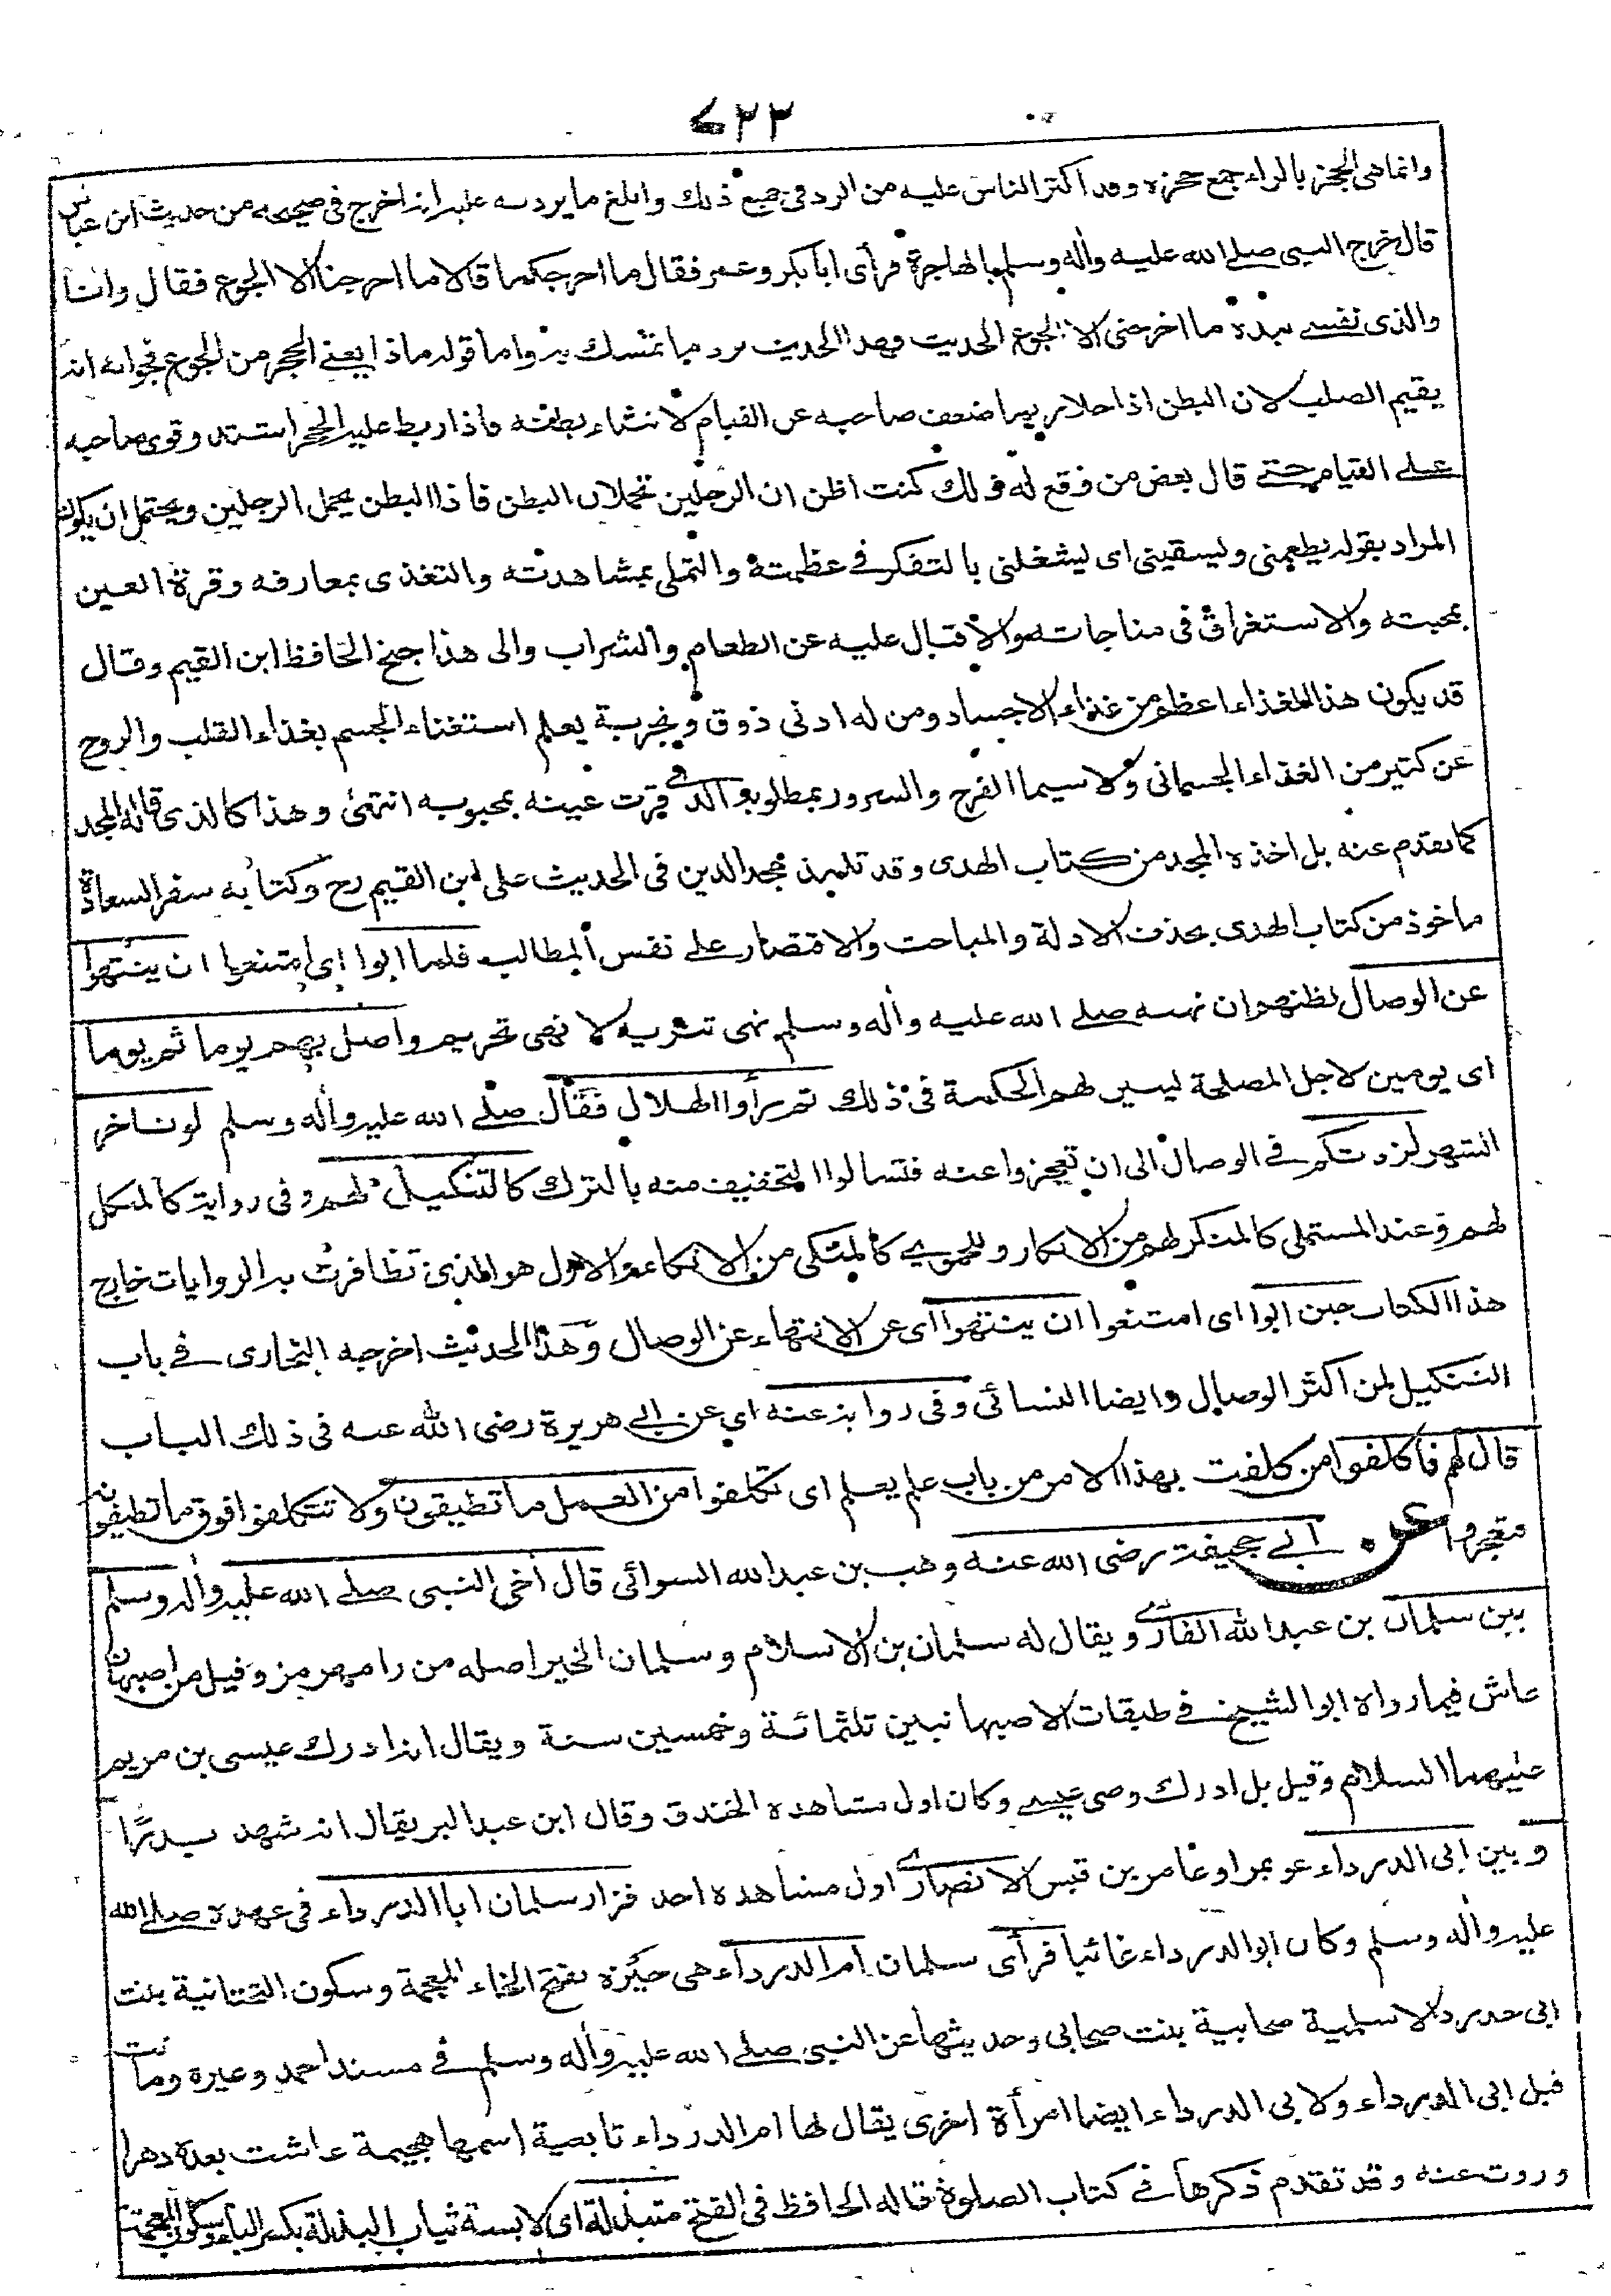 ٦٢٢
وانما هى الحجز بالراء جمع حجزه وقد اكثر الناس عليه من الرد فى جميع ذلك وابلغ ما يرد به عليه انه اخرج فى صحيحه من حديث ابن عباس
قال خرج النبى صلى الله عليه واله وسلم بالهاجرة فرأى ابا بكر وعمر فقال ما اخرجكما قالا ما اخرجنا الا الجوع فقال وانا
والذى نفسى بيده ما اخرجنى الا الجوع الحديث وهذا الحديث يرد ما تمسك به واما قوله ماذا يغنى الحجر من الجوع فجوابه انه
يقيم الصلب لان البطن اذا خلا ربما ضعف صاحبه عن القيام لانثناء بطنه فاذا ربط عليه الحجر اشتد وقوى صاحبه
على القيام حتى قال بعض من وقع له ذلك كنت اظن ان الرجلين تحملان البطن فاذا البطن يحمل الرجلين ويحتمل ان يكون
المراد بقوله يطعمنى ويسقينى اى يشغلنى بالتفكر فى عظمته والتملى بمشاهدته والتغذى بمعارفه وقرة العين
بمحبته والاستغراق فى مناجاته والاقبال عليه عن الطعام والشراب والى هذا جنح الحافظ ابن القيم وقال
قد يكون هذا الغذاء اعظم من غذاء الاجساد ومن له ادنى ذوق وتجربة يعلم استغناء الجسم بغذاء القلب والروح
عن كثير من الغذاء الجسمانى ولا سيما الفرح والسرور بمطلوبه الذى قرت عينه بمحبوبه انتهى وهذا كالذى قاله المجد
كما تقدم عنه بل اخذه المجد من كتاب الهدى وقد تلمذ مجد الدين فى الحديث على ابن القيم رح وكتابه سفر السعادة
ماخوذ من كتاب الهدى بحذف الادلة والمباحث والاقتصار على نفس المطالب فلما ابوا اى امتنعوا ان ينتهوا
عن الوصال لظنهم ان نهيه صلى الله عليه واله وسلم نهى تنزيه لا نهى تحريم واصل بهم يوما ثم يوما
اى يومين لاجل المصلحة ليبين لهم الحكمة فى ذلك ثم رأوا الهلال فقال صلى الله عليه واله وسلم لو تاخر
الشهر لزدتكم فى الوصال الى ان تعجزوا عنه فتسالوا التخفيف منه بالترك كالتنكيل لهم وفى رواية كالمنكل
لهم وعند المستملى كالمنكر لهم من الانكار وللحموى كالمنكى من الانكاء والاول هو الذى تظافرت به الروايات خارج
هذا الكتاب حين ابوا اى امتنعوا ان ينتهوا اى عن الانتهاء عن الوصال وهذا الحديث اخرجه البخارى فى باب
التنكيل لمن اكثر الوصال وايضا النسائى وفى رواية عنه اى عن ابى هريرة رضى الله عنه فى ذلك الباب
قال لهم فاكلفوا من كلفت بهذا الامر من باب علم يعلم اى تكلفوا من العمل ما تطيقون ولا تتكلفوا فوق ما تطيقونه
فتعجزوا عن ابى جحيفة رضى الله عنه وهب بن عبد الله السوائى قال اخى النبى صلى الله عليه واله وسلم
بين سلمان بن عبد الله الفارسى ويقال له سلمان بن الاسلام وسلمان الخير اصله من رامهرمز وقيل من اصبهان
عاش فيما رواه ابو الشيخ فى طبقات الاصبهانيين ثلثمائة وخمسين سنة ويقال انه ادرك عيسى بن مريم
عليهما السلام وقيل بل ادرك وصى عيسى وكان اول مشاهده الخندق وقال ابن عبد البر يقال انه شهد بدرًا
وبين ابى الدرداء عويمر او عامر بن قيس الانصارى اول مشاهده احد فزار سلمان ابا الدرداء فى عهده صلى الله
عليه واله وسلم وكان ابو الدرداء غائبا فرأى سلمان ام الدرداء هى خيرة بفتح الخاء المعجمة وسكون التحتانية بنت
ابى حدرد الاسلمية صحابية بنت صحابى وحديثها عن النبى صلى الله عليه واله وسلم فى مسند احمد وغيره وماتت
قبل ابى الدرداء ولابى الدرداء ايضا امرأة اخرى يقال لها ام الدرداء تابعية اسمها هجيمة عاشت بعده دهرا
وروت عنه وقد تقدم ذكرها فى كتاب الصلوة قاله الحافظ فى الفتح متبذلة اى لابسة ثياب البذلة بكسر الباء وسكون المعجمة